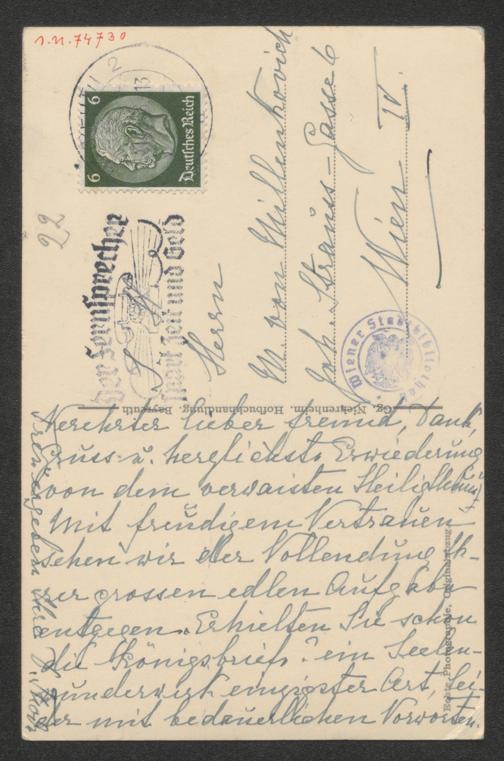 1.N.74730
2
13
6
6
Deutsches Reich
22
Der Fernsprecher
spart Zeit und Geld
Herrn
M von Millenkovich
Joh. Strauss-Gasse 6
Wien IV.
Wiener Stadtbibliothek
Gg. Niehrenheim, Hofbuchhandlung, Bayreuth
Verehrter lieber Freund, Dank,
Gruss u. herzlichste Erwiederung
von dem verwaisten Heiligthum
Mit freudigem Vertrauen
sehen wir der Vollendung Ih-
rer grossen edlen Aufgabe
entgegen. Erhielten Sie schon
die Königsbriefe? ein Seelen-
wunderwerk einzigster Art, lei-
der mit bedauerlichen Vorworten.
Treuergeben Ihre
Echte Photographie,